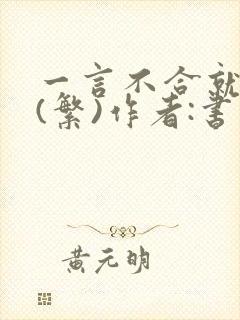 一言不合就
(繁)作者:書
黃元明